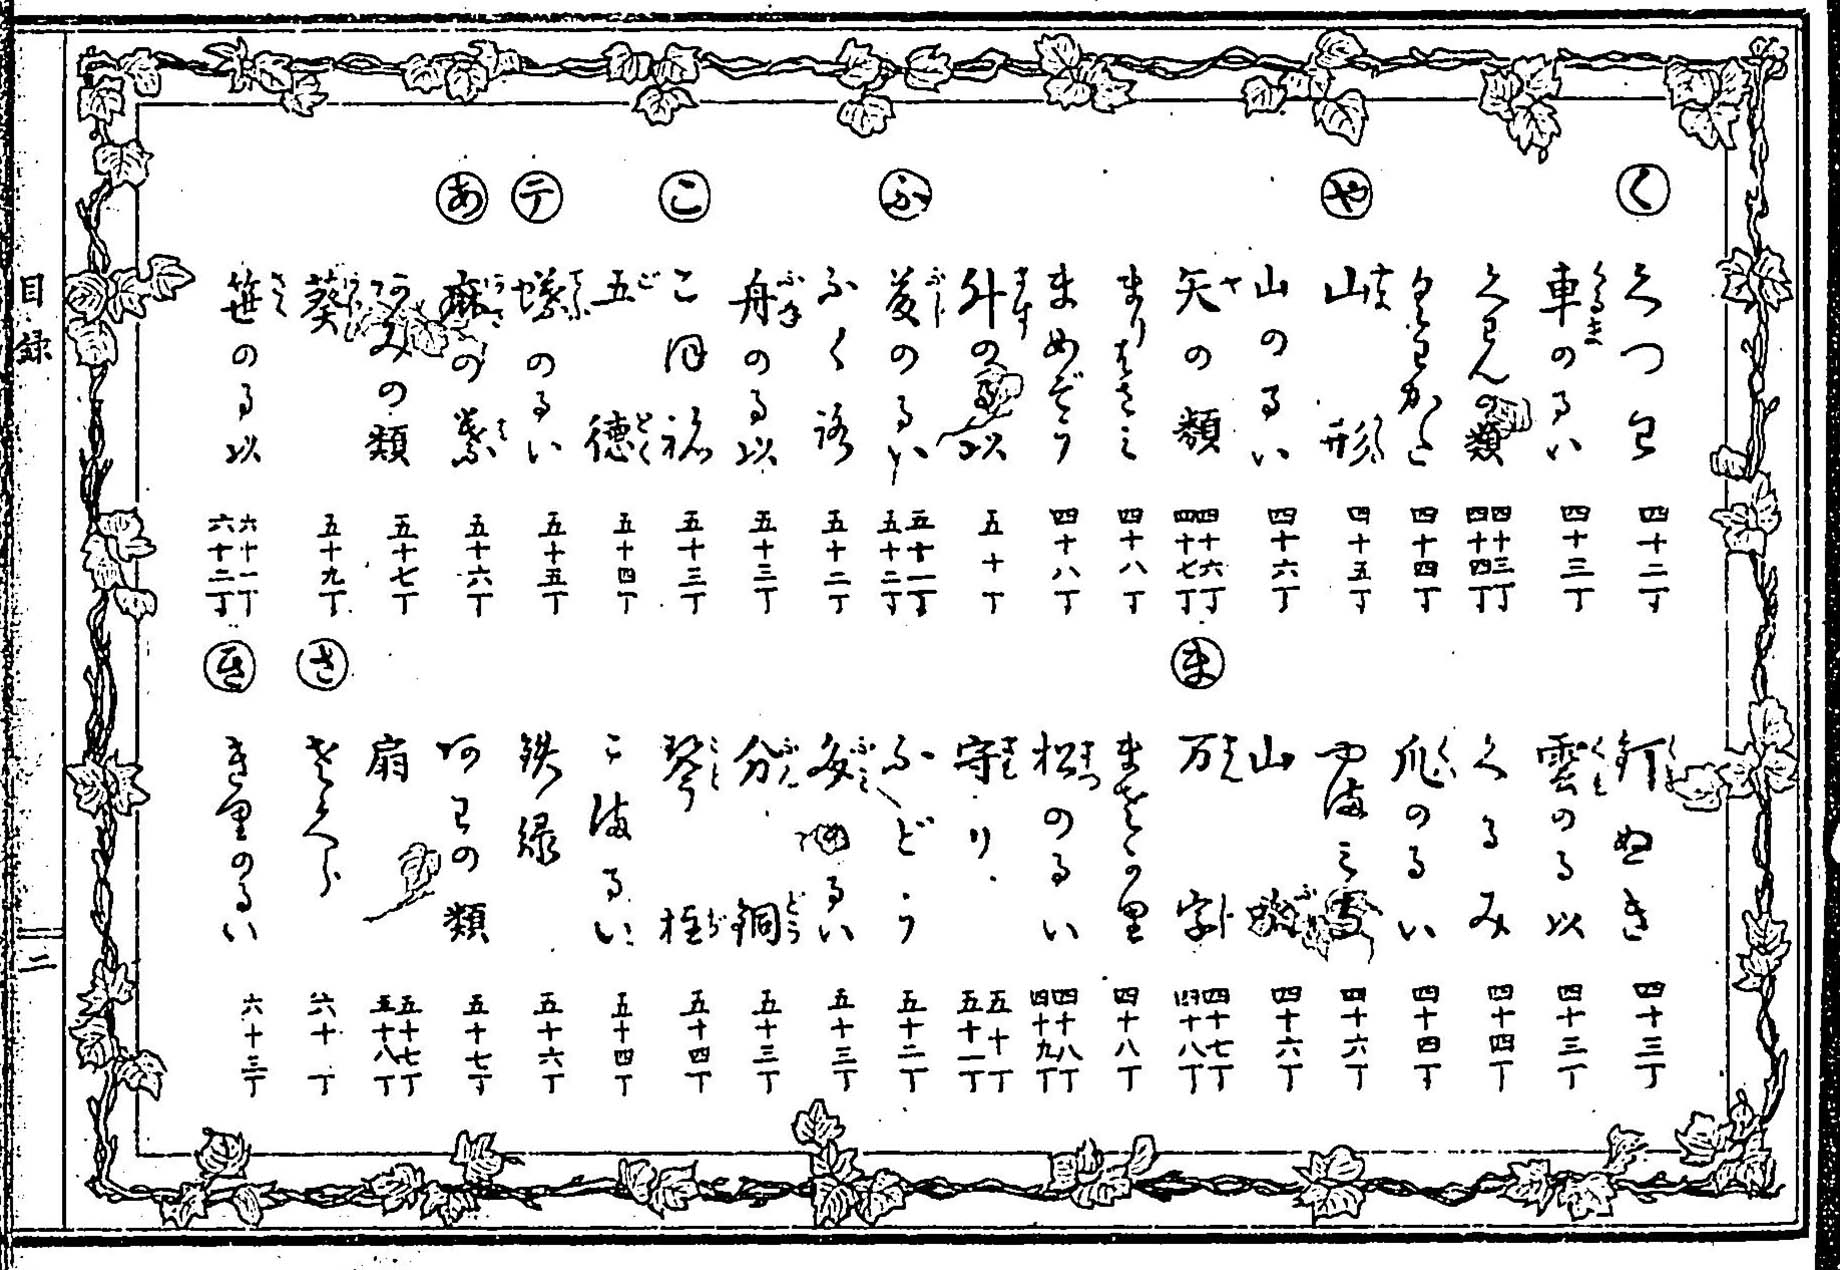 目録
二
く
くつわ 四十二丁
車のるい くるま 四十三丁
くわんの類 四十三丁 四十四丁
くわがた 四十四丁
や
山形 やま がた 四十五丁
山のるい 四十六丁
矢の類 や 四十六丁 四十七丁
まりはさミ 四十八丁
まめぞう 四十八丁
舛のるい ます 五十丁
ふ
菱のるい 五十一丁 五十二丁
ふくろ 五十二丁
舟のるい ふね 五十三丁
こ
五十三丁
五徳 ご とく 五十四丁
テ
蝶のるい てふ 五十五丁
あ
麻の葉 あさ は 五十六丁
あみの類 五十七丁
葵 あふひ 五十九丁
笹のるい さゝ 六十一丁 六十二丁
釘ぬき くぎ 四十三丁
雲のるい くも 四十三丁
くるみ 四十四丁
爪のるい 四十四丁
四十六丁
山 四十六丁
ま
万字 まん じ 四十七丁 四十八丁
四十八丁
松のるい まつ 四十八丁 四十九丁
守り まも 五十丁 五十一丁
ぶどう 五十二丁
るい 五十三丁
分銅 ふん どう 五十三丁
琴柱 こと ぢ 五十四丁
こまるい 五十四丁
鉄線 五十六丁
あわの類 五十七丁
扇 五十七丁 五十八丁
さ
六十丁
き
きりのるい 六十三丁